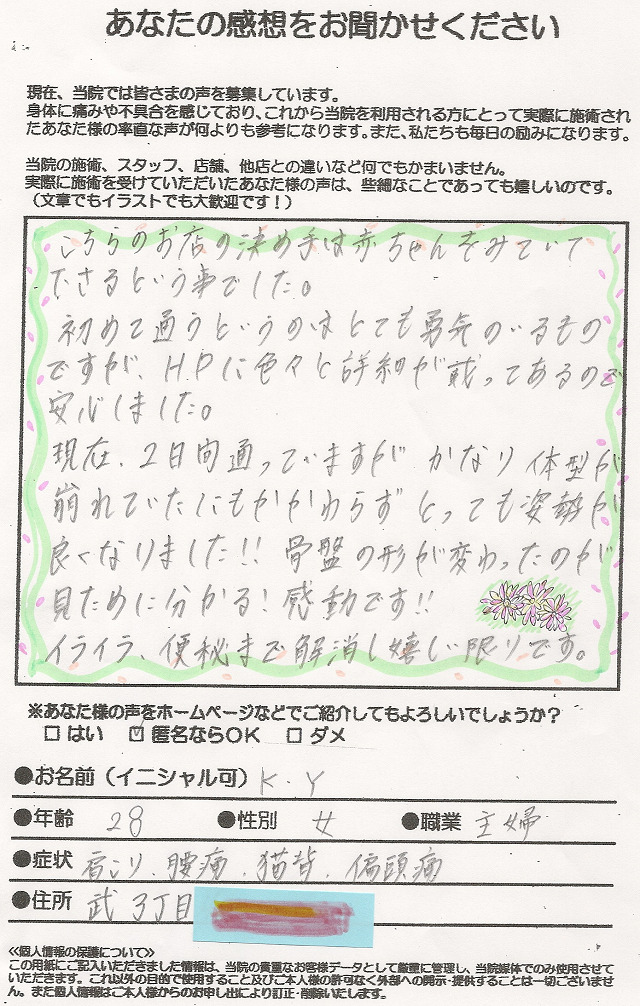 あなたの感想をお聞かせください
現在、当院では皆さまの声を募集しています。
身体に痛みや不具合を感じており、これから当院を利用される方にとって実際に施術され
たあなた様の率直な声が何よりも参考になります。また、私たちも毎日の励みになります。
当院の施術、スタッフ、店舗、他店との違いなど何でもかまいません。
実際に施術を受けていただいたあなた様の声は、些細なことであっても嬉しいのです。
（文章でもイラストでも大歓迎です！）
こちらのお店の決め手は赤ちゃんをみていて
下さるという事でした。
初めて通うというのはとても勇気のいるもの
ですが、HPに色々と詳細が載ってあるので
安心しました。
現在、2日間通っていますが かなり体型が
崩れていたにもかかわらず とっても姿勢が
良くなりました!! 骨盤の形が変わったのが
見ために分かる! 感動です!!
イライラ、便秘まで解消し嬉しい限りです。
※あなた様の声をホームページなどでご紹介してもよろしいでしょうか？
□ はい ☑ 匿名ならOK □ ダメ
●お名前（イニシャル可） K.Y
●年齢 28 ●性別 女 ●職業 主婦
●症状 肩こり、腰痛、猫背、偏頭痛
●住所 武3丁目
≪個人情報の保護について≫
この用紙にご記入いただきました情報は、当院の貴重なお客様データとして厳重に管理し、当院媒体でのみ使用させて
いただきます。これ以外の目的で使用すること及びご本人様の許可なく外部への開示・提供することは一切ございませ
ん。また個人情報はご本人様からのお申し出により訂正・削除いたします。